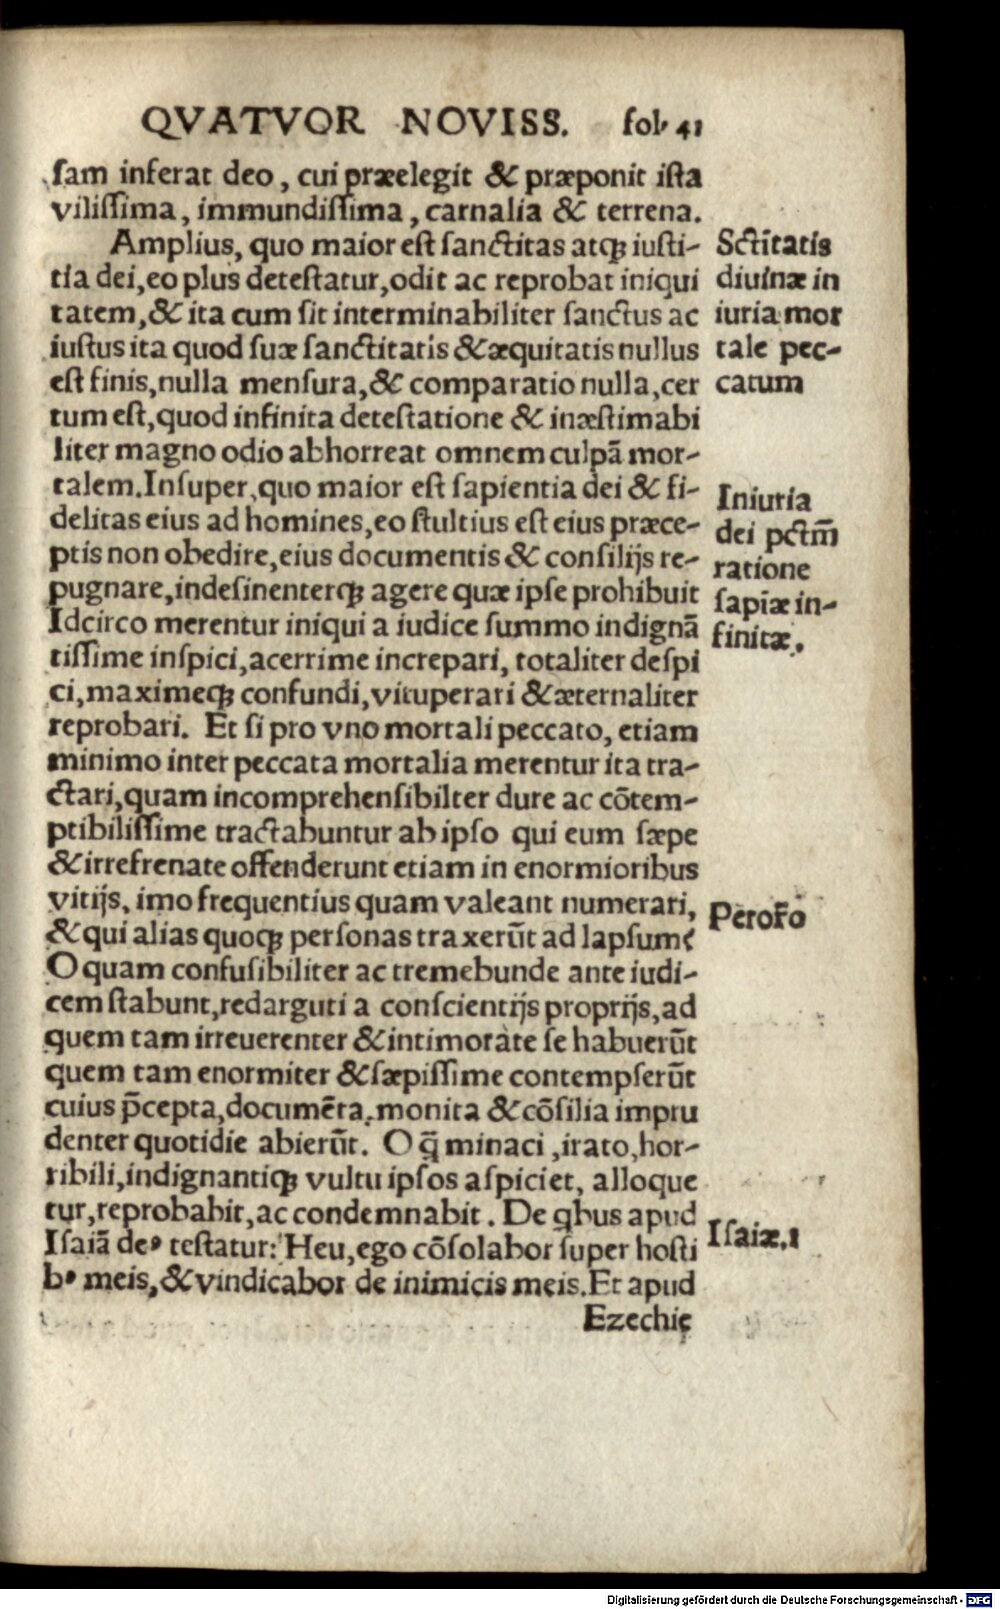 QVATVOR NOVISS. fol. 41
sam inferat deo, cui præelegit & præponit ista
vilissima, immundissima, carnalia & terrena.
Amplius, quo maior est sanctitas atq; iusti-
tia dei, eo plus detestatur, odit ac reprobat iniqui
tatem, & ita cum sit interminabiliter sanctus ac
iustus ita quod suæ sanctitatis & æquitatis nullus
est finis, nulla mensura, & comparatio nulla, cer
tum est, quod infinita detestatione & inæstimabi
liter magno odio abhorreat omnem culpā mor-
talem. Insuper, quo maior est sapientia dei & fi-
delitas eius ad homines, eo stultius est eius præce-
ptis non obedire, eius documentis & consilijs re-
pugnare, indesinenterq; agere quæ ipse prohibuit
Idcirco merentur iniqui a iudice summo indignā
tissime inspici, acerrime increpari, totaliter despi
ci, maximeq; confundi, vituperari & æternaliter
reprobari. Et si pro vno mortali peccato, etiam
minimo inter peccata mortalia merentur ita tra-
ctari, quam incomprehensibilter dure ac cōtem-
ptibilissime tractabuntur ab ipso qui eum sæpe
& irrefrenate offenderunt etiam in enormioribus
vitijs, imo frequentius quam valeant numerari,
& qui alias quoq; personas traxerūt ad lapsum?
O quam confusibiliter ac tremebunde ante iudi-
cem stabunt, redarguti a conscientijs proprijs, ad
quem tam irreuerenter & intimorate se habuerūt
quem tam enormiter & sæpissime contempserūt
cuius p̄cepta, documēta, monita & cōsilia impru
denter quotidie abierūt. O q̄ minaci, irato, hor-
ribili, indignantiq; vultu ipsos aspiciet, alloque
tur, reprobabit, ac condemnabit. De qbus apud
Isaiā deꝰ testatur: Heu, ego cōsolabor super hosti
bꝰ meis, & vindicabor de inimicis meis. Et apud
Ezechie
Sctītatis
diuinæ in
iuria mor
tale pec-
catum
Iniuria
dei pctm̄
ratione
sapiæ in-
finitæ.
Peror̄o
Isaiæ. 1
Digitalisierung gefördert durch die Deutsche Forschungsgemeinschaft - DFG